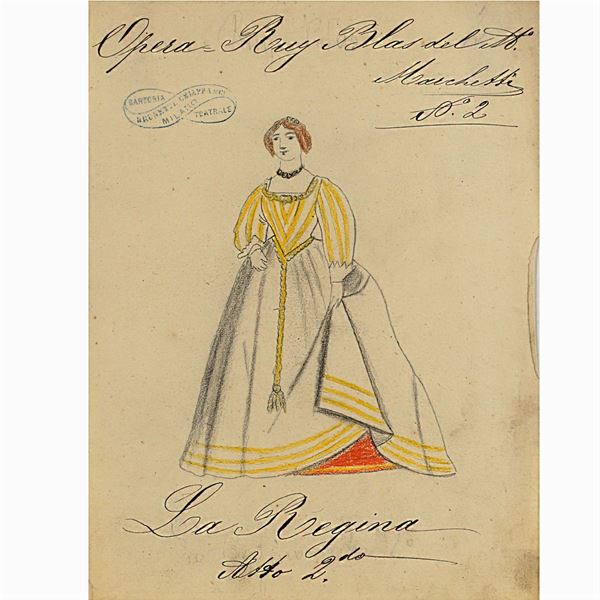 Opera = Ruy Blas del M.
Marchetti
N.º 2
SARTORIA
BRUNETTI CHIAPPANI
MILANO
TEATRALE
La Regina
Atto 2.do